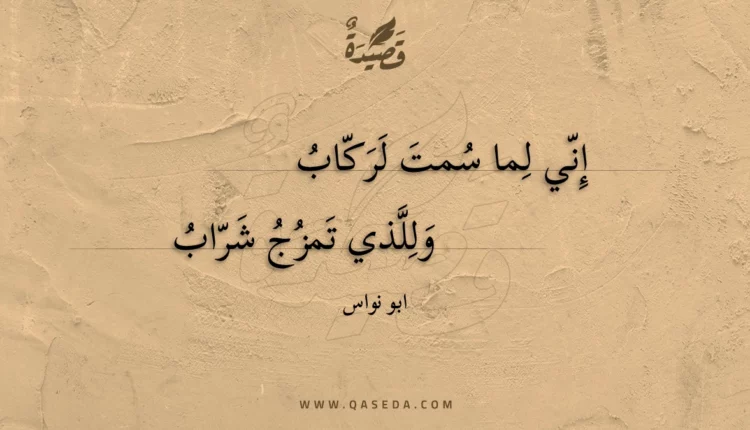 قَصِيدَةٌ
إِنّي لِما سُمتَ لَرَكّابُ
وَلِلَّذي تَمزُجُ شَرّابُ
ابو نواس
WWW.QASEDA.COM